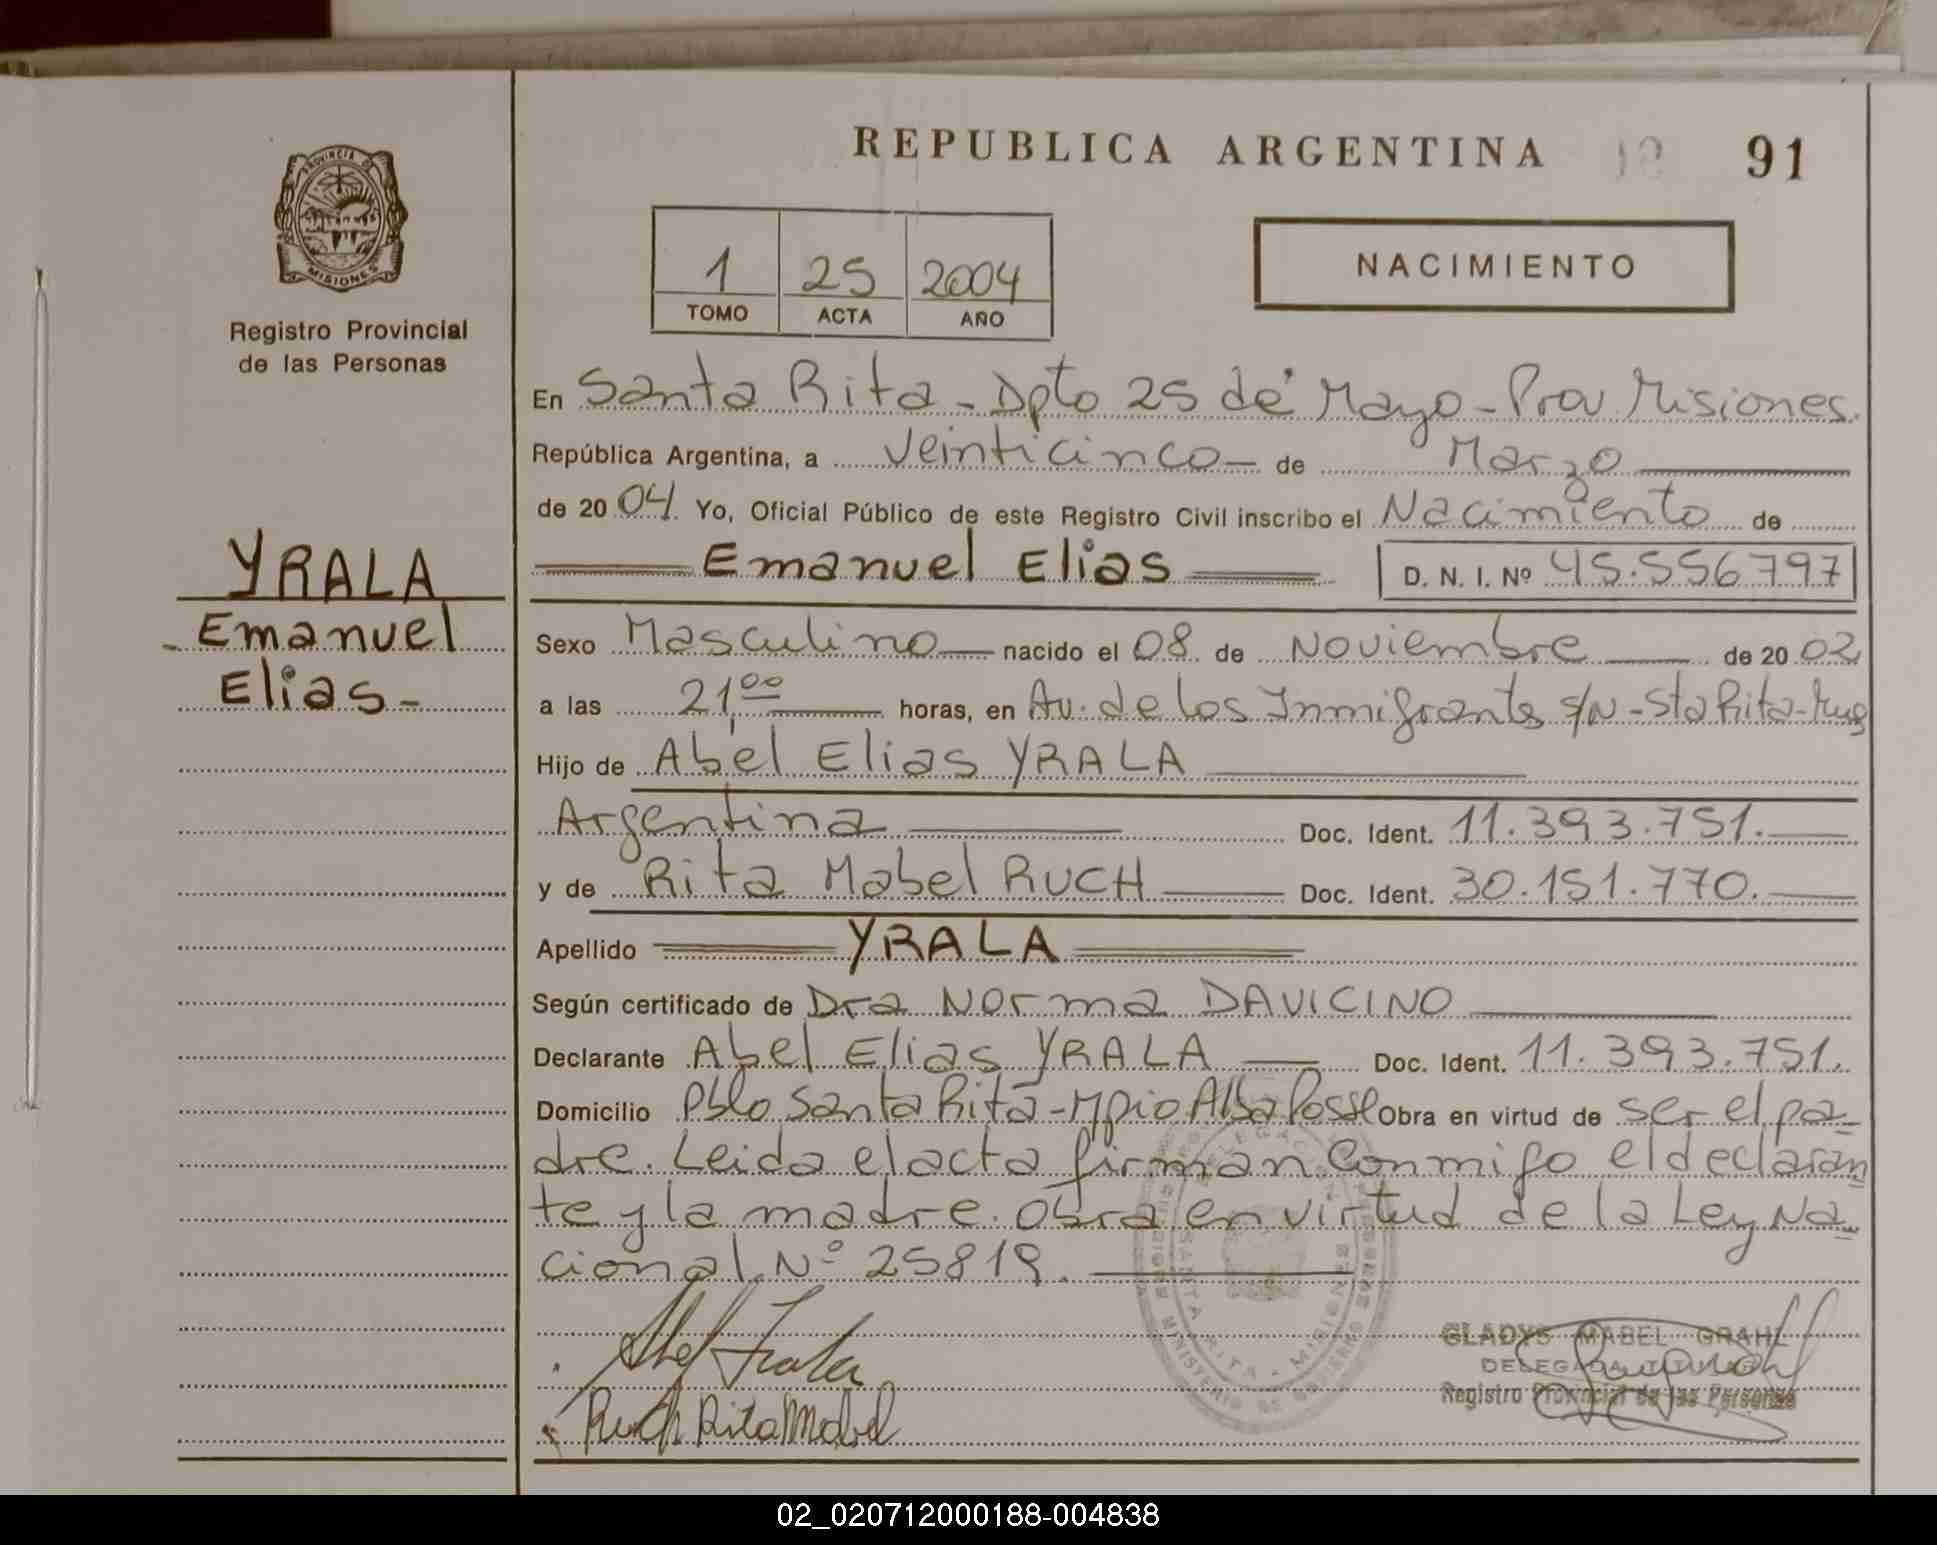 REPUBLICA ARGENTINA 91
PROVINCIA DE
MISIONES
Registro Provincial
de las Personas
1 25 2004
TOMO ACTA AÑO
NACIMIENTO
En Santa Rita - Dpto 25 de Mayo - Prov Misiones.
República Argentina, a veinticinco de Marzo
de 2004. Yo, Oficial Público de este Registro Civil inscribo el Nacimiento de
Emanuel Elias D. N. I. Nº 45.556797
YRALA
Emanuel
Elias-
Sexo Masculino nacido el 08 de Noviembre de 2002
a las 21,00 horas, en Av. de los Inmigrantes s/N - Sta Rita -
Hijo de Abel Elias YRALA
Argentina Doc. Ident. 11.393.751.
y de Rita Mabel RUCH Doc. Ident. 30.151.770.
Apellido YRALA
Según certificado de Dra Norma DAVICINO
Declarante Abel Elias YRALA Doc. Ident. 11.393.751.
Domicilio Pblo Santa Rita - Mpio Alba Posse Obra en virtud de ser el pa-
dre. Leida el acta firman conmigo el declaran
te y la madre. Obra en virtud de la Ley Na-
cional Nº 25819.
Abel Yrala
Ruch Rita Mabel
SANTA RITA - MISIONES
MINISTERIO DE GOBIERNO
GLADYS MABEL GRAHL
DELEGADA TITULAR
Registro Provincial de las Personas
02_020712000188-004838